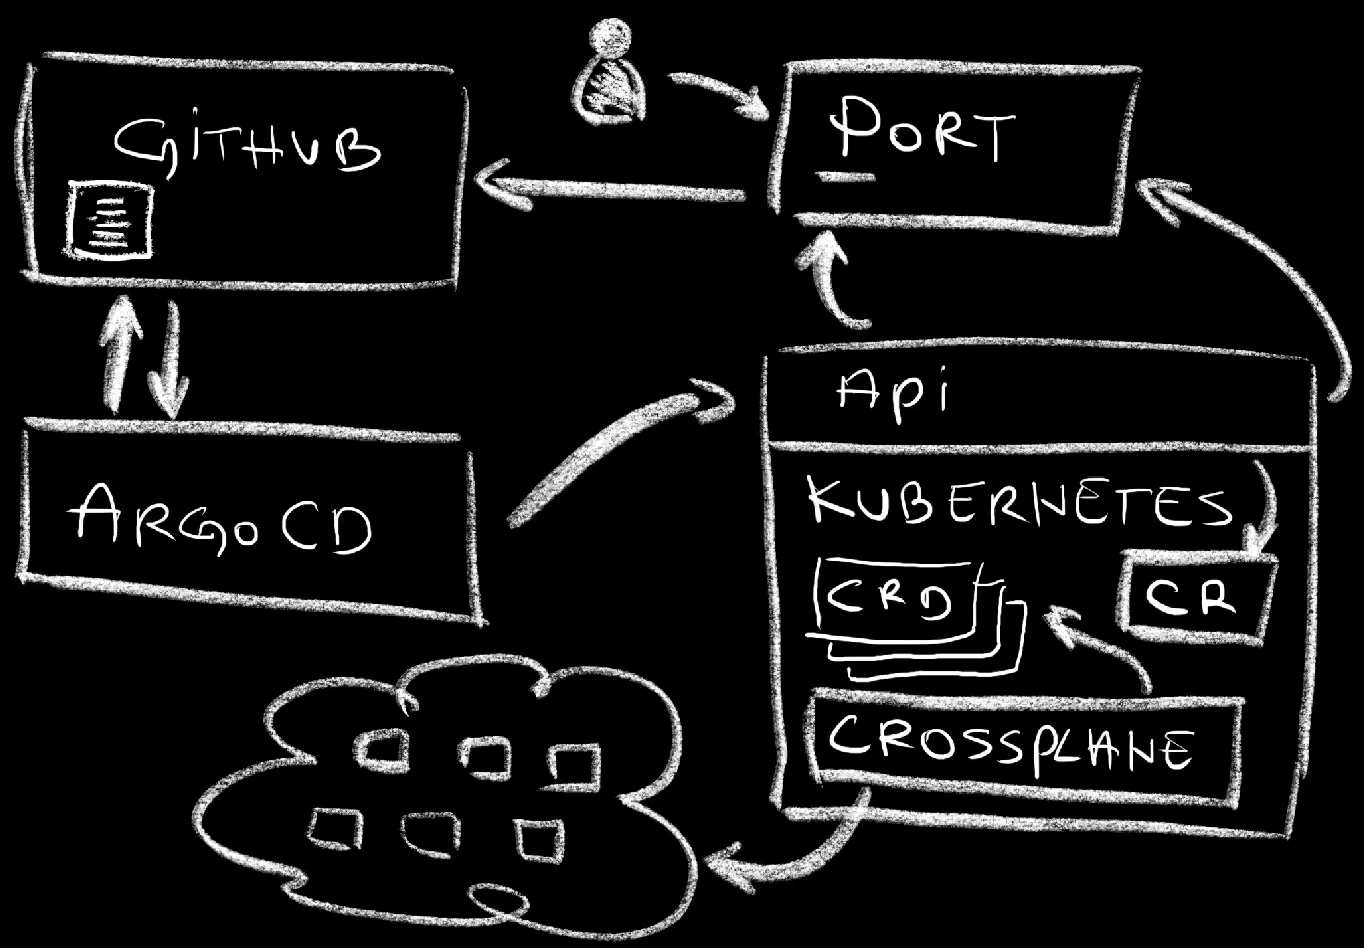 GiTHUB
PORT
Api
ARGO CD
KUBERNETES
CRD
CR
CROSSPLANE